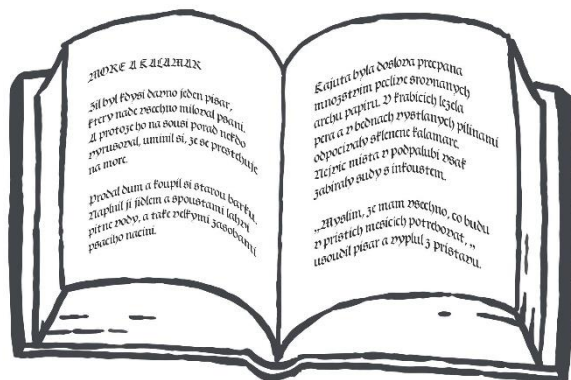 MORE A KALAMAR
Zil byl kdysi davno jeden pisar,
ktery nade vsechno miloval psani.
A protoze ho na sousi porad nekdo
vyrusoval, uminil si, ze se prestehuje
na more.
Prodal dum a koupil si starou barku.
Naplnil ji jidlem a spoustami lahvi
pitne vody, a take velkymi zasobami
psaciho nacini.
Kajuta byla doslova precpana
mnozstvim peclive srovnanych
archu papiru. V krabicich lezela
pera a v bednach vystlanych pilinami
odpocivaly sklenene kalamare.
Nejvic mista v podpalubi vsak
zabiraly sudy s inkoustem.
„Myslim, ze mam vsechno, co budu
v pristich mesicich potrebovat, „
usoudil pisar a vyplul z pristavu.